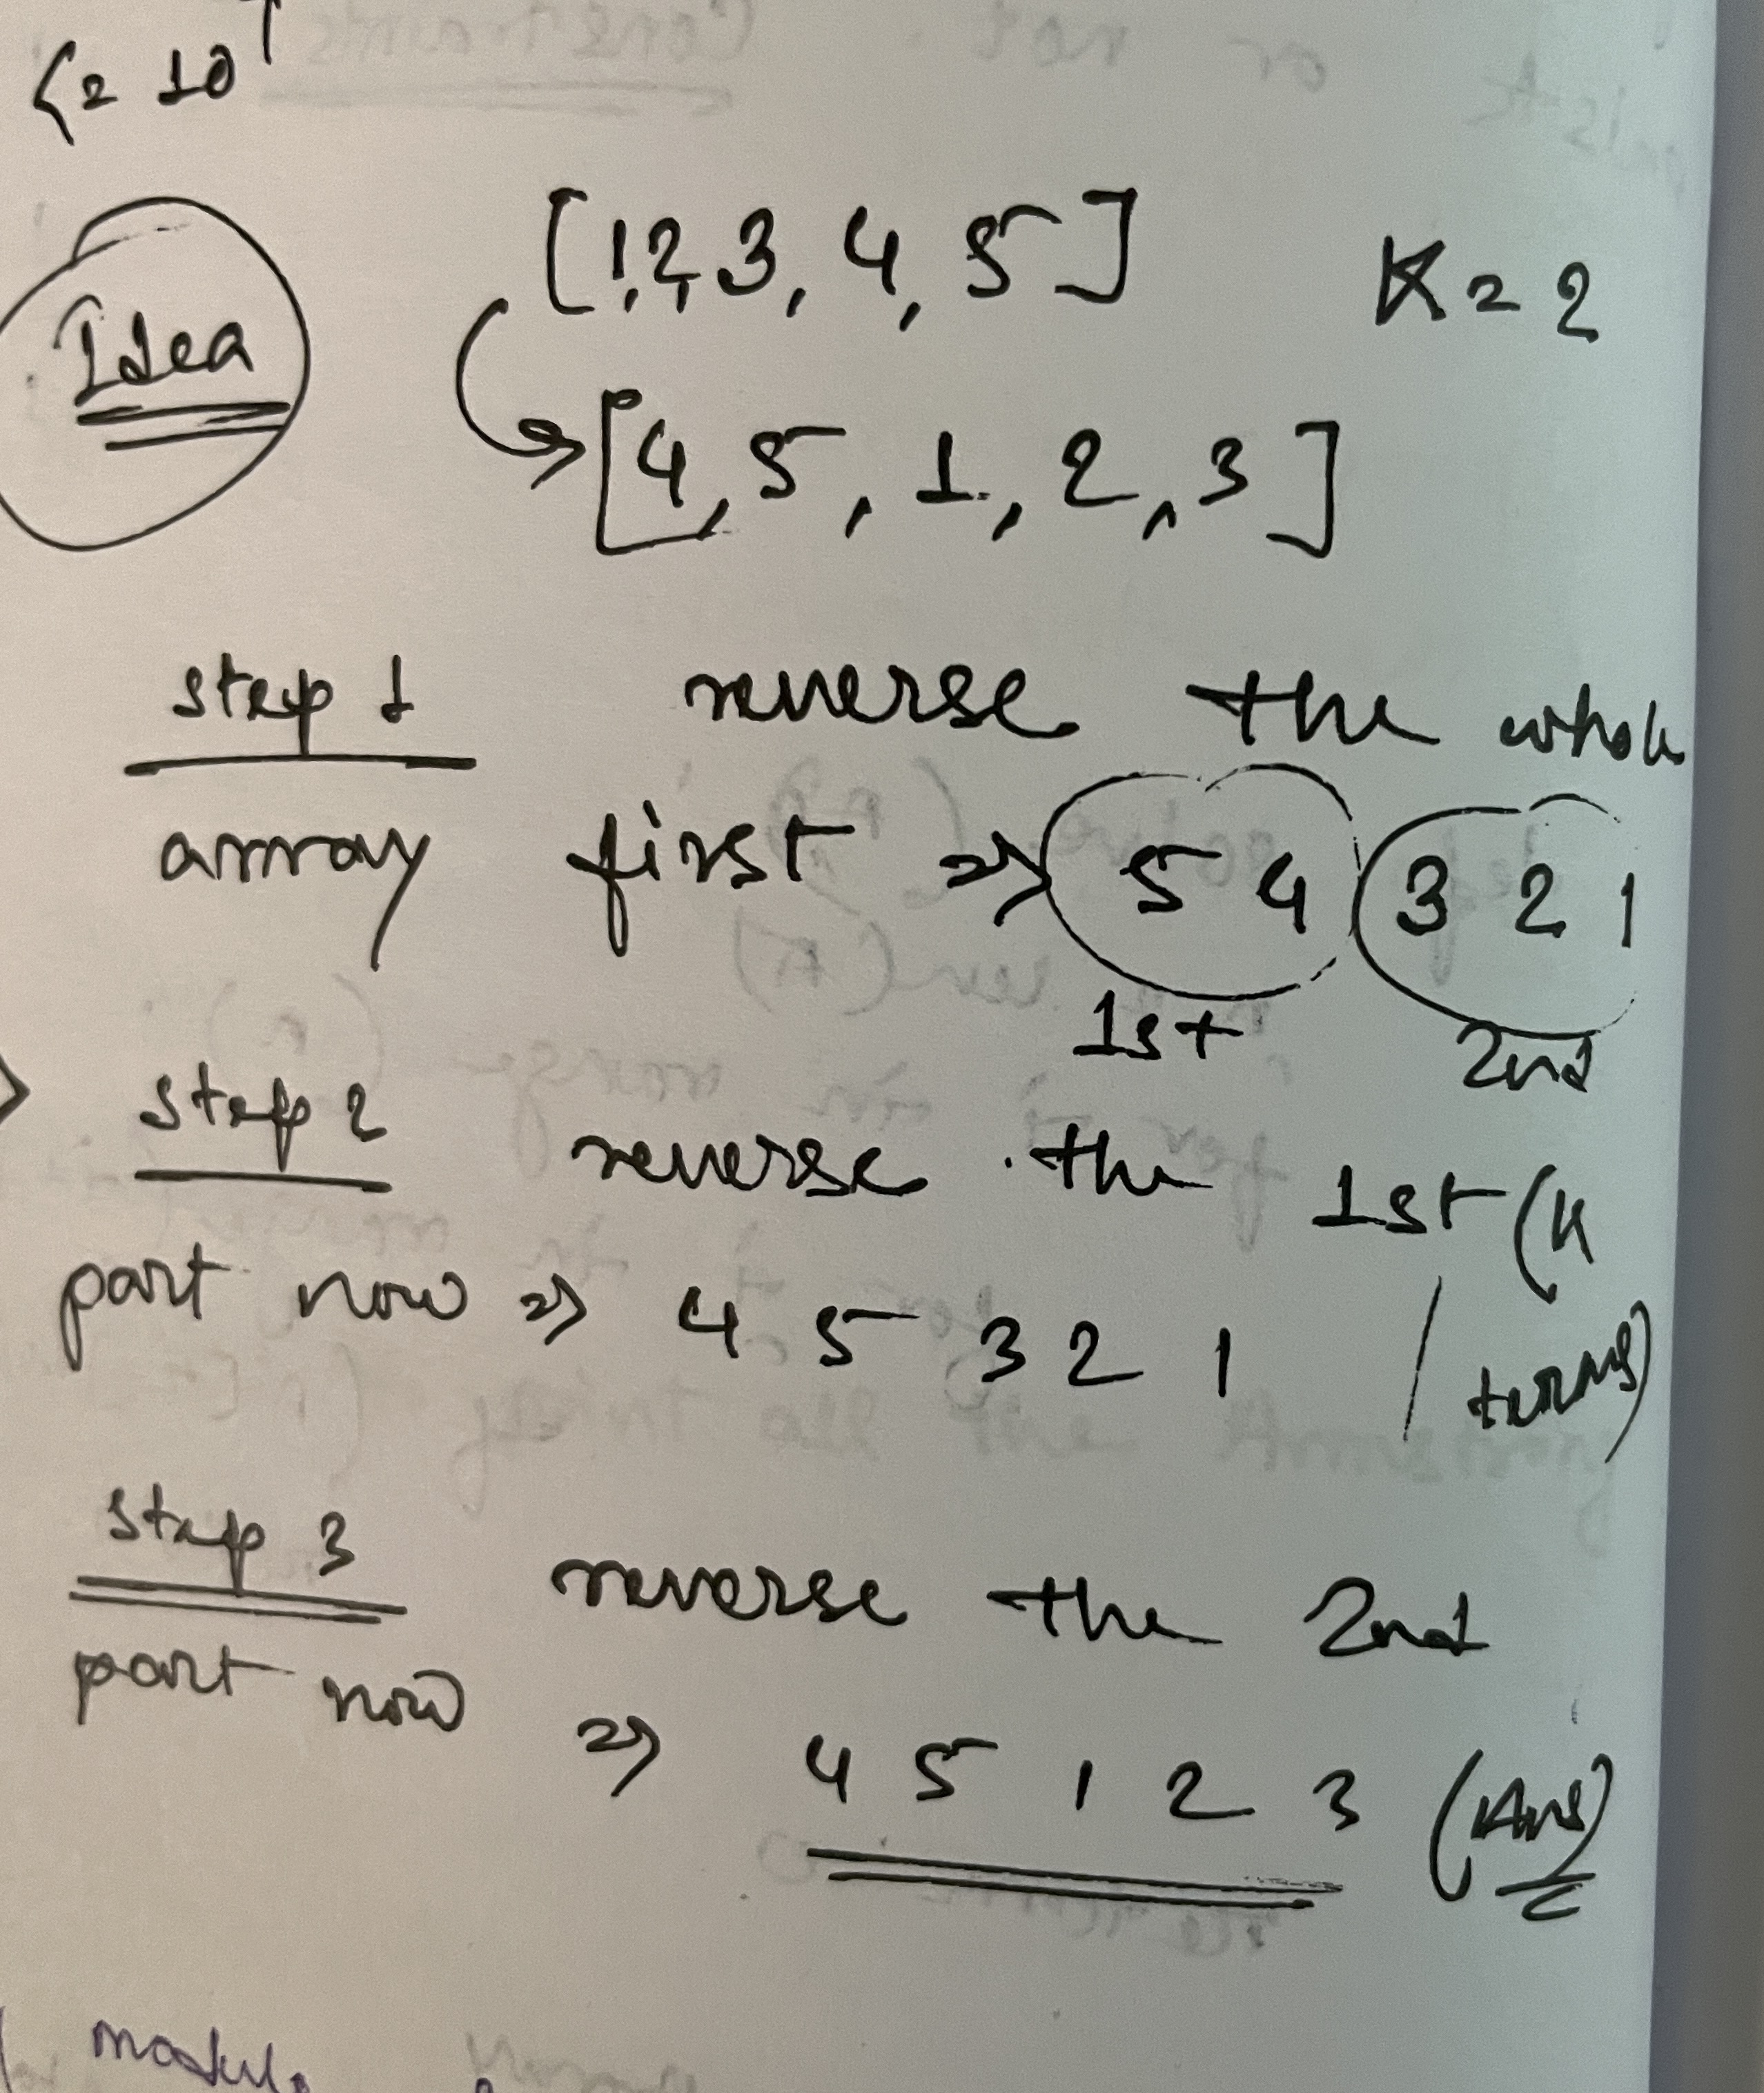 <= 10
Idea
[1,2,3,4,5] K = 2
[4,5,1,2,3]
step 1 reverse the whole
array first => 5 4 3 2 1
1st 2nd
step 2 reverse the 1st (K
part now => 4 5 3 2 1 / terms)
step 3 reverse the 2nd
part now => 4 5 1 2 3 (Ans)